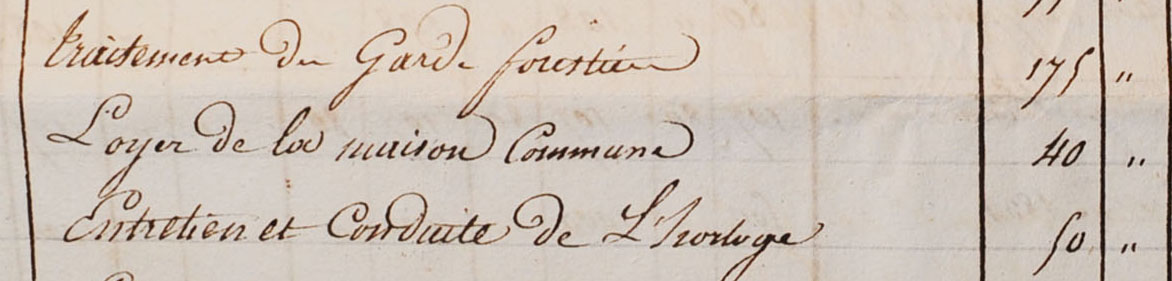 traitement du Garde forestier 175 "
Loyer de la maison Commune 40 "
Entretien et Conduite de L'horloge 50 "